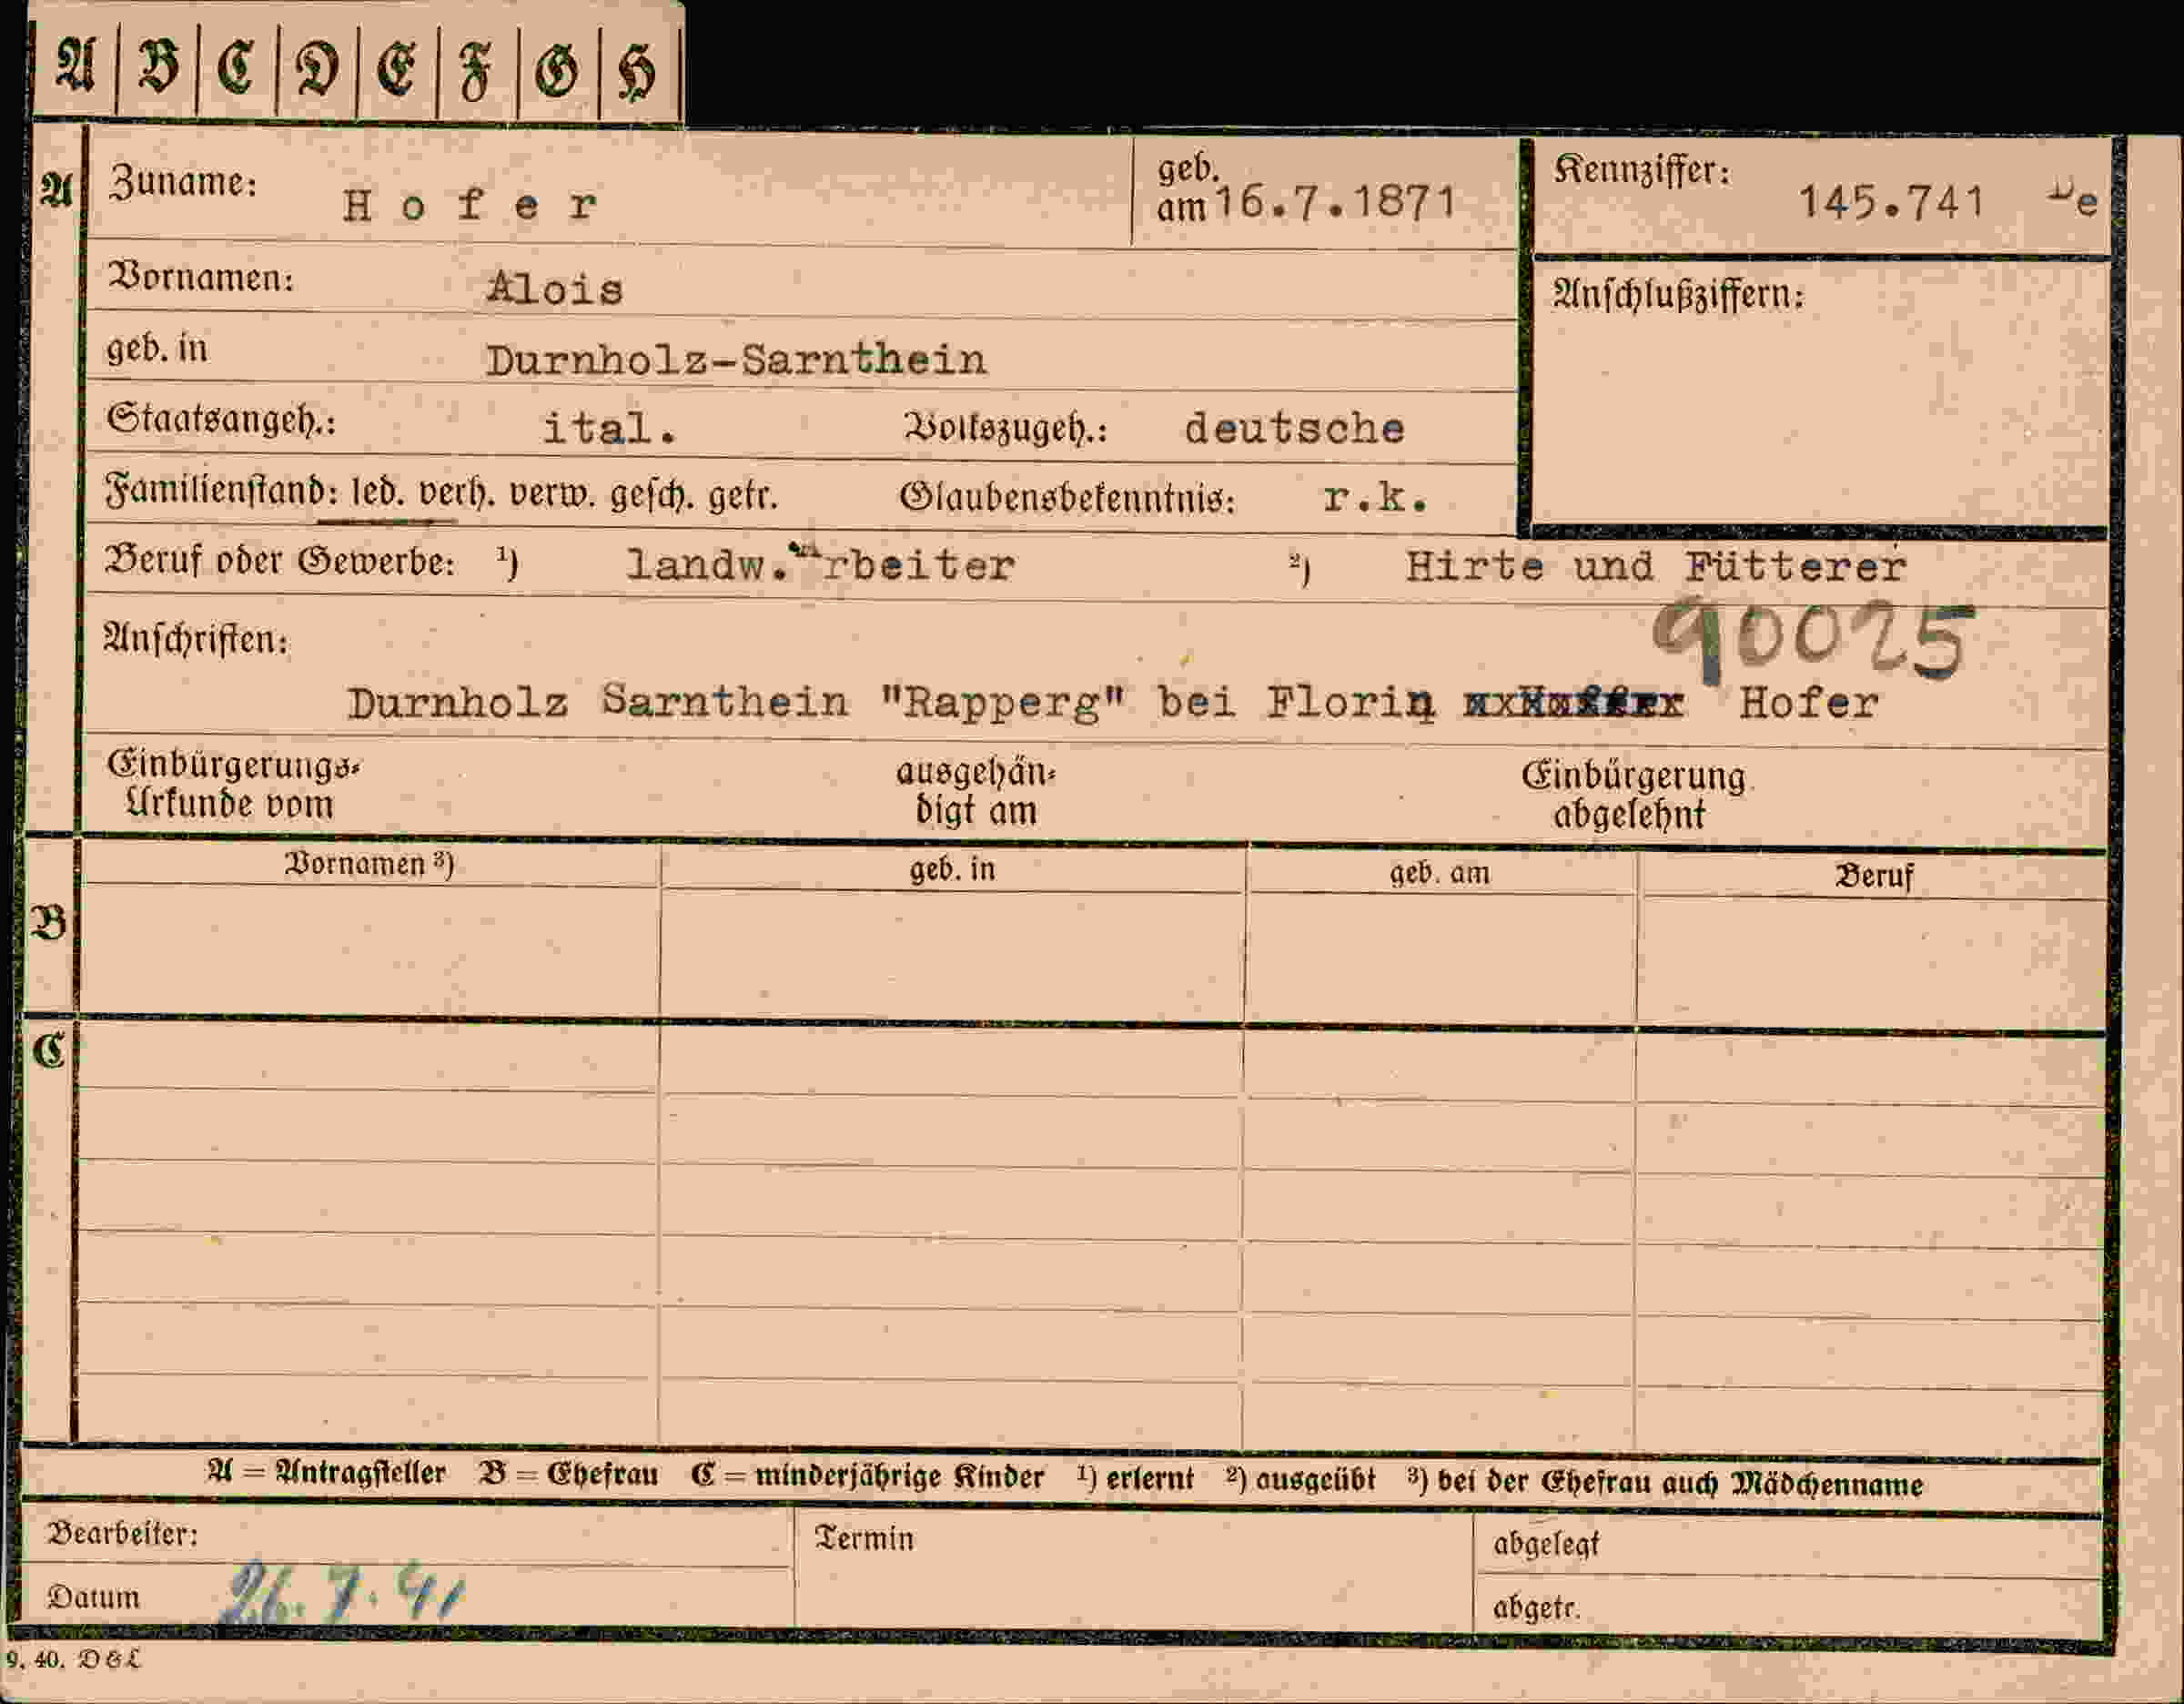 A B C D E F G H
A Zuname: Hofer geb. am 16.7.1871 Kennziffer: 145.741 De
Vornamen: Alois Anschlußziffern:
geb. in Durnholz-Sarnthein
Staatsangeh.: ital. Volkszugeh.: deutsche
Familienstand: led. verh. verw. gesch. getr. Glaubensbekenntnis: r.k.
Beruf oder Gewerbe: ¹) landw. Arbeiter ²) Hirte und Fütterer
90025
Anschriften:
Durnholz Sarnthein "Rapperg" bei Florin Hofer
Einbürgerungs- ausgehän- Einbürgerung
Urkunde vom digt am abgelehnt
Vornamen ³) geb. in geb. am Beruf
B
C
A = Antragsteller B = Ehefrau C = minderjährige Kinder ¹) erlernt ²) ausgeübt ³) bei der Ehefrau auch Mädchenname
Bearbeiter: Termin abgelegt
Datum 26.7.41 abgetr.
9. 40. D&L